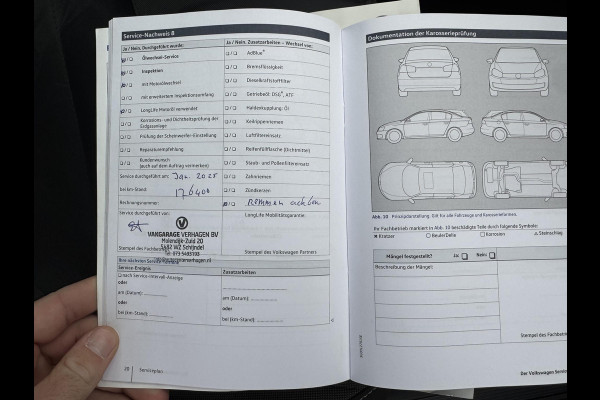 Service-Nachweis 8
Ja / Nein, Durchgeführt wurde:
Ölwechsel-Service
Inspektion
mit Motorölwechsel
mit erweitertem Inspektionsumfang
LongLife Motoröl verwendet
Korrosions- und Dichtheitsprüfung der
Erdgasanlage
Prüfung der Scheinwerfer-Einstellung
Reparaturempfehlung
Kundenwunsch
(auch auf dem Auftrag vermerken)
Service durchgeführt am: Jan. 2025
bei km-Stand: 176400
Rechnungsnummer:
Service durchgeführt von:
VANGARAGE VERHAGEN BV
Molendijk-Zuid 20
5482 WZ Schijndel
Tel. 073 5493103
Stempel des Fachbetriebs
Ihre nächsten Service-Termine
Service-Ereignis
nach Service-Intervall-Anzeige
oder
am (Datum):
oder
bei (km-Stand):
Ja / Nein, Zusatzarbeiten – Wechsel von:
AdBlue®
Bremsflüssigkeit
Dieselkraftstofffilter
Getriebeöl: DSG®, ATF
Haldexkupplung: Öl
Keilrippenriemen
Luftfiltereinsatz
Reifenfüllflasche (Dichtmittel)
Staub- und Pollenfiltereinsatz
Zahnriemen
Zündkerzen
Remmen achter
LongLife Mobilitätsgarantie:
Stempel des Volkswagen Partners
Zusatzarbeiten
am (Datum):
oder
bei (km-Stand):
Serviceplan
Dokumentation der Karosserieprüfung
Abb. 10 Prinzipdarstellung: Gilt für alle Fahrzeuge und Karosserieformen.
Ihr Fachbetrieb markiert in Abb. 10 beschädigte Teile durch folgende Symbole:
Kratzer Beule/Delle Korrosion Steinschlag
Mängel festgestellt? Ja: Nein:
Beschreibung der Mängel:
Stempel des Fachbetri
Der Volkswagen Servic